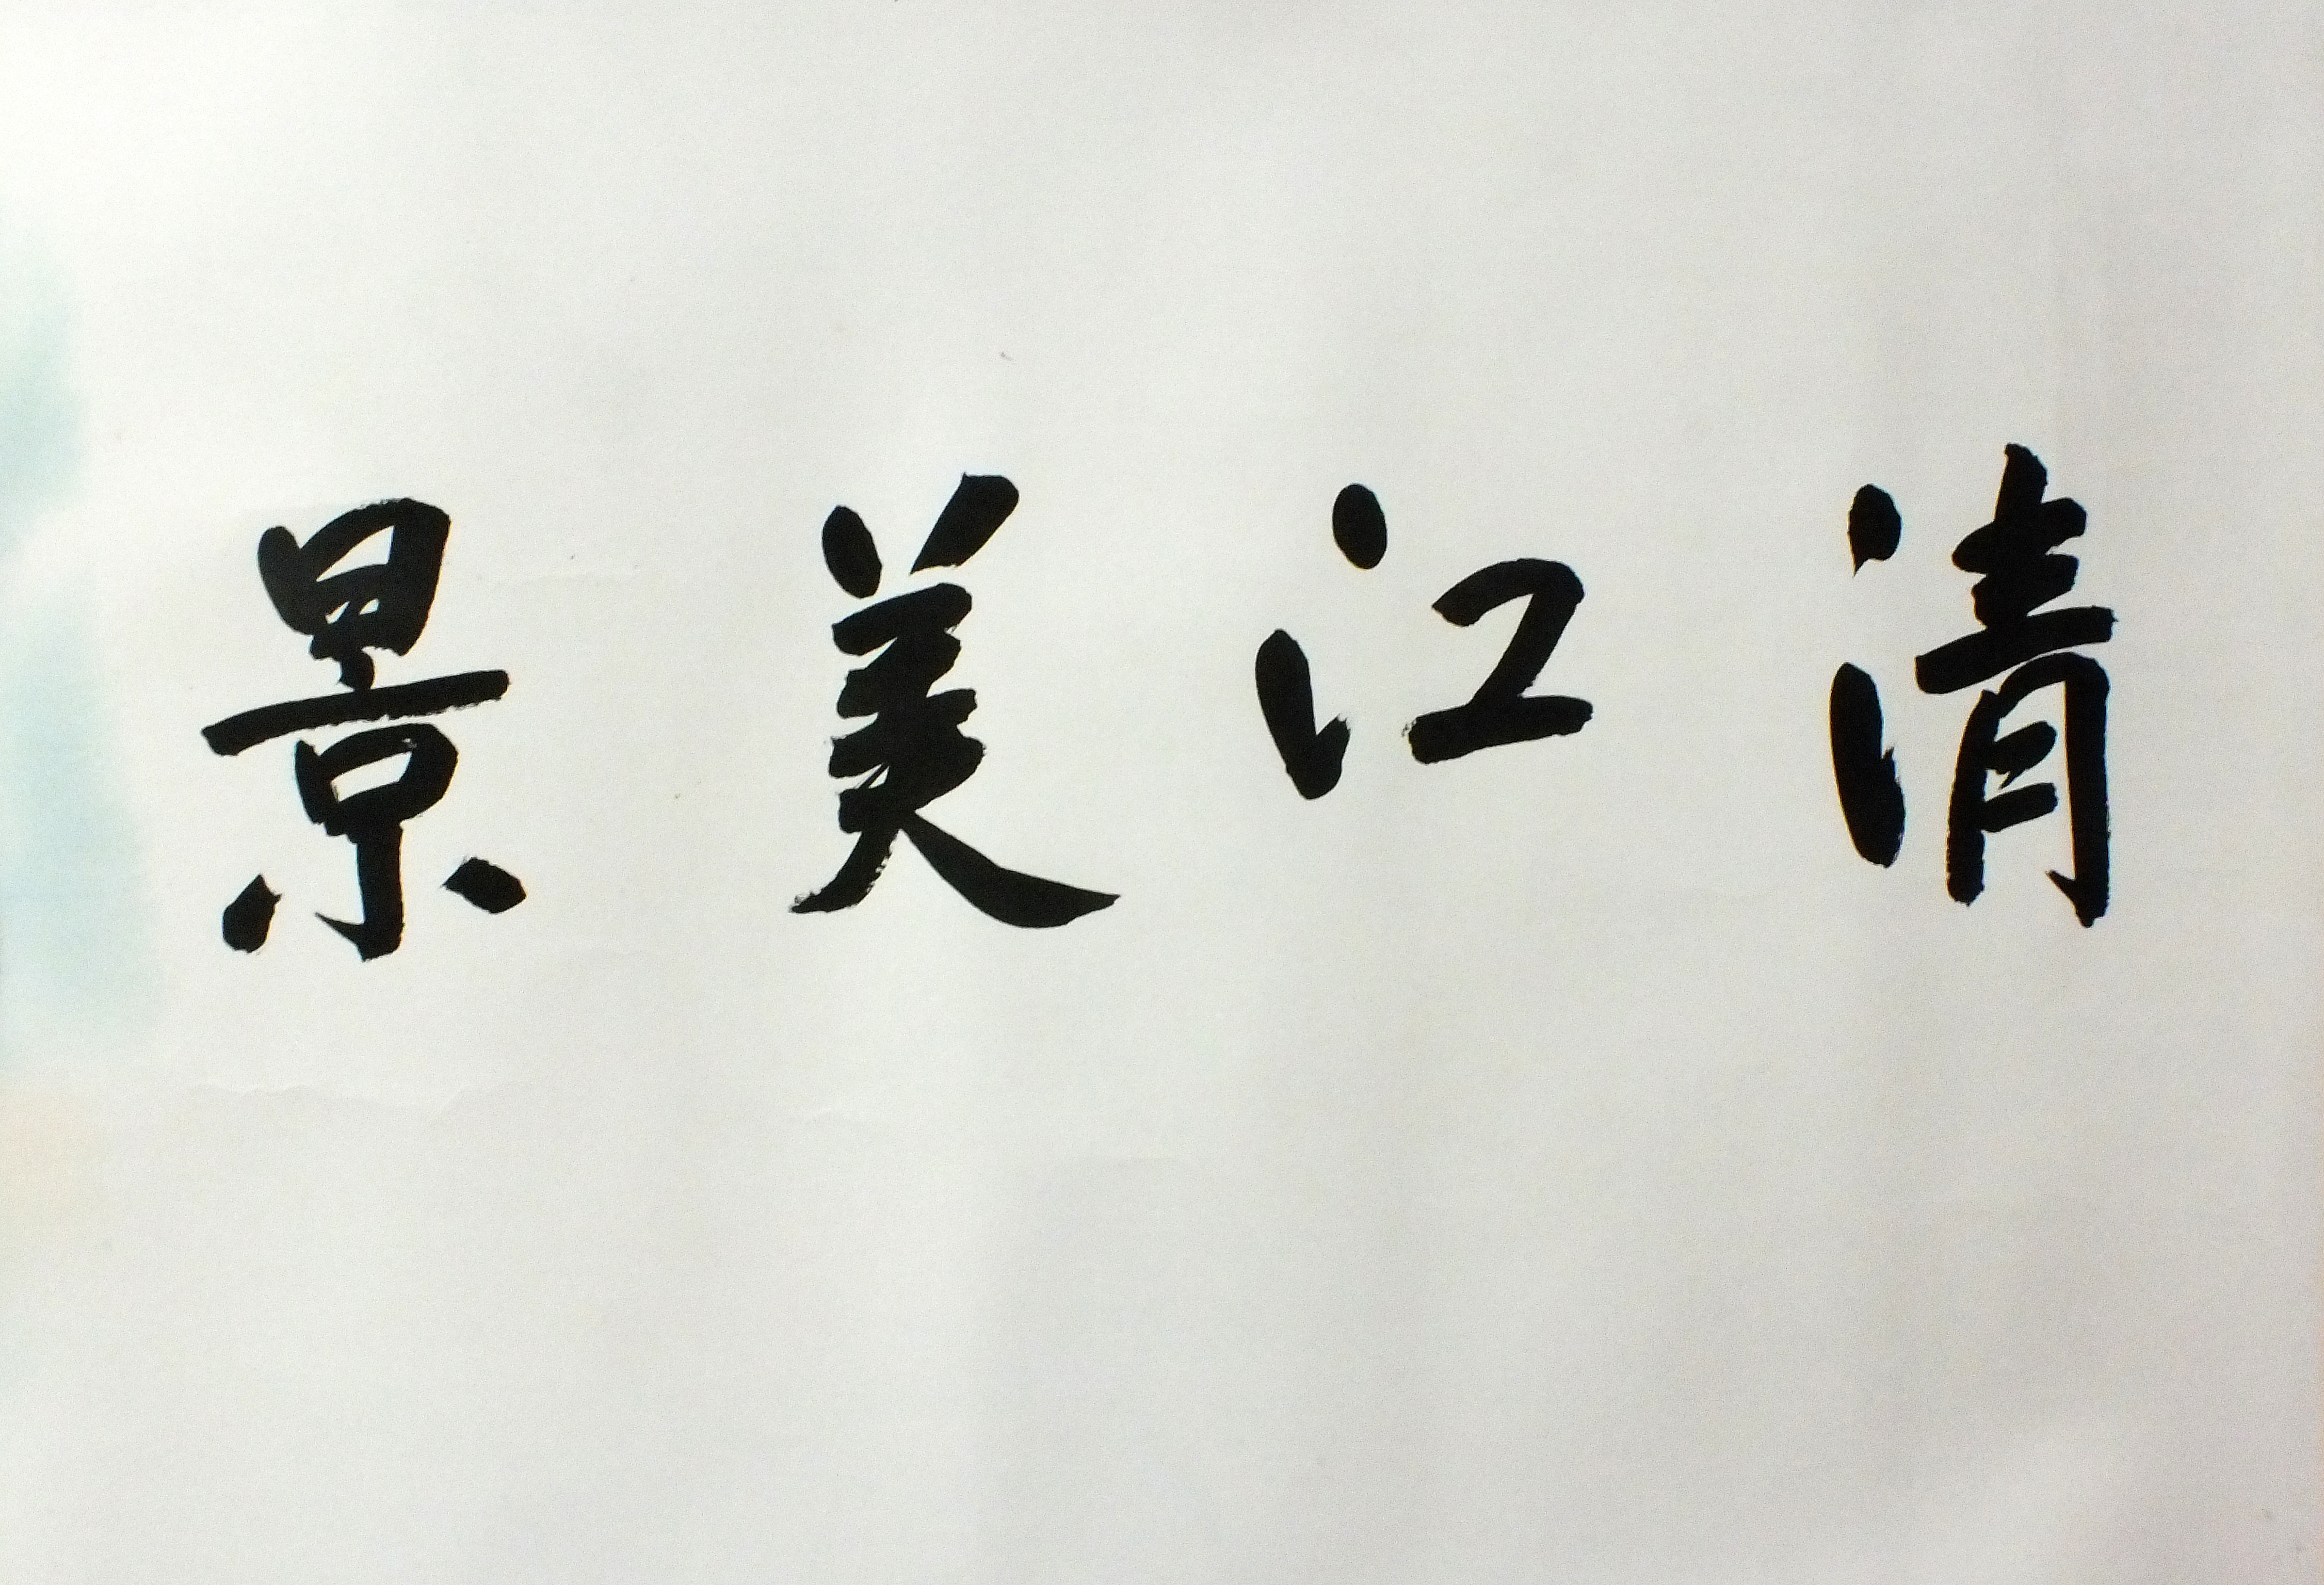 清江美景